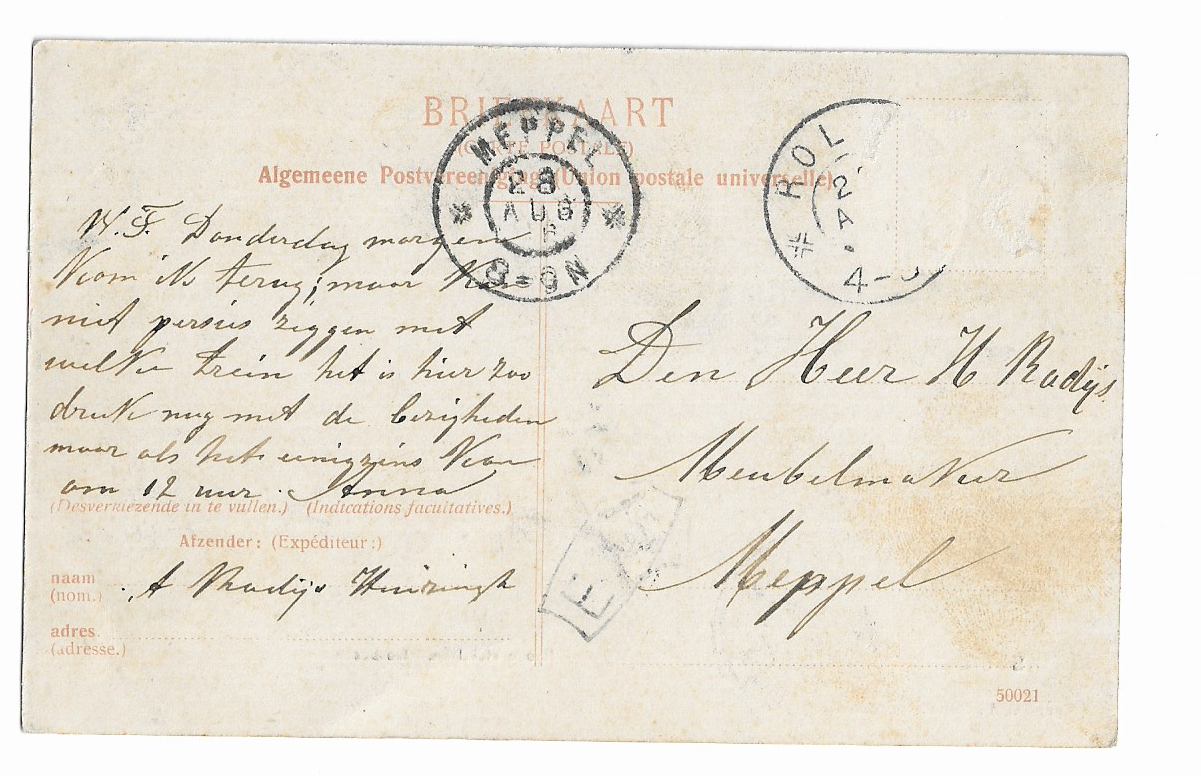 BRIEFKAART
(CARTE POSTALE)
Algemeene Postvereeniging (Union postale universelle)
MEPPEL
28
AUG
8-9N
ROL
2
A
4-5
W.F. Donderdag morgen
Kom ik terug; maar kan
niet persies zeggen met
welke trein het is hier zoo
druk nug met de bezigheden
maar als het eenigzins kan
om 12 uur. Anna
(Desverkiezende in te vullen.) (Indications facultatives.)
Afzender: (Expéditeur:)
naam
(nom.)
A Radijs
adres.
(adresse.)
Den Heer H Radijs
Meubelmaker
Meppel
50021